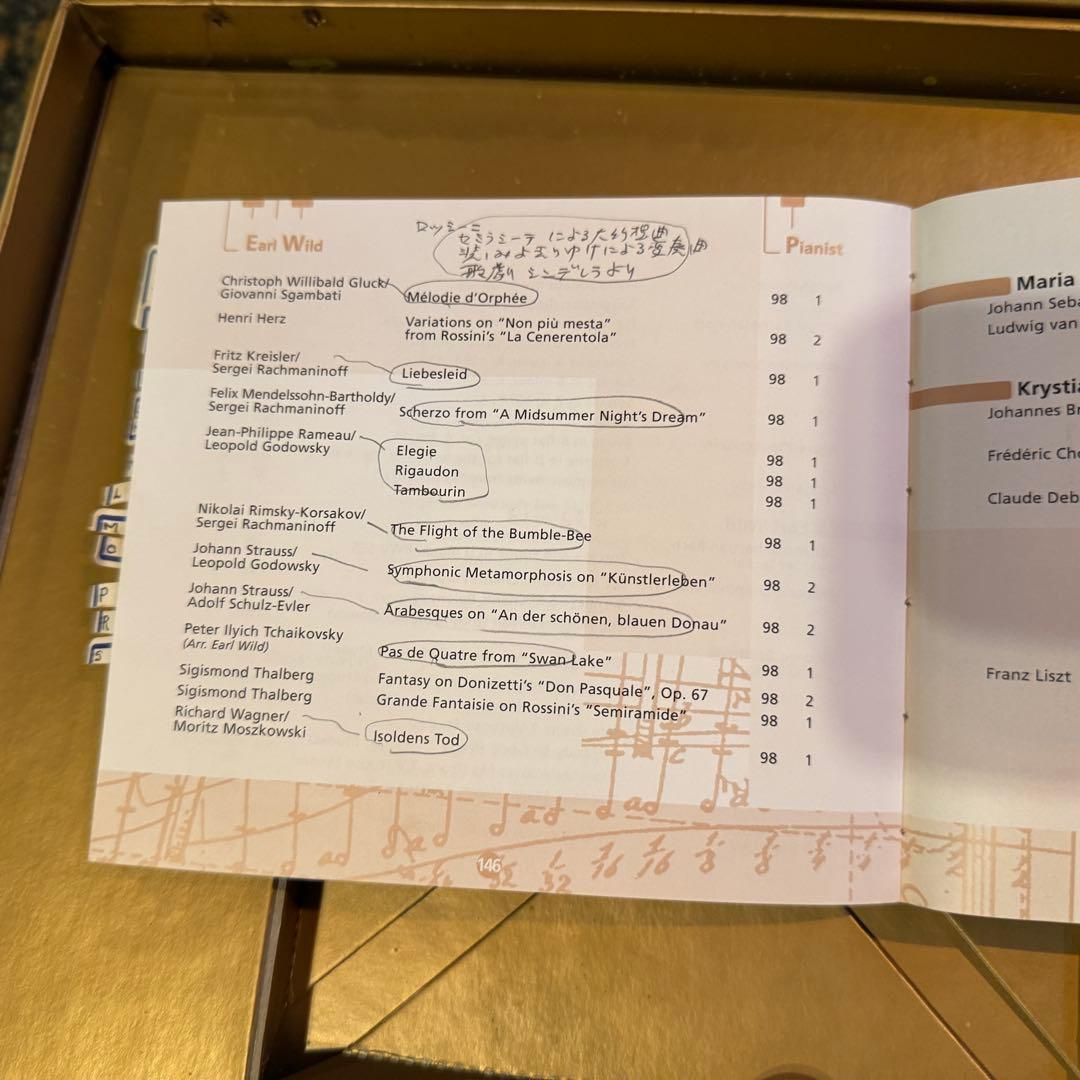 Earl Wild
Pianist
ロッシーニ
セミラミーデ による大幻想曲
による変奏曲
歌劇 シンデレラより
Christoph Willibald Gluck/
Giovanni Sgambati
Mélodie d'Orphée 98 1
Henri Herz
Variations on "Non più mesta"
from Rossini's "La Cenerentola" 98 2
Fritz Kreisler/
Sergei Rachmaninoff
Liebesleid 98 1
Felix Mendelssohn-Bartholdy/
Sergei Rachmaninoff
Scherzo from "A Midsummer Night's Dream" 98 1
Jean-Philippe Rameau/
Leopold Godowsky
Elegie 98 1
Rigaudon 98 1
Tambourin 98 1
Nikolai Rimsky-Korsakov/
Sergei Rachmaninoff
The Flight of the Bumble-Bee 98 1
Johann Strauss/
Leopold Godowsky
Symphonic Metamorphosis on "Künstlerleben" 98 2
Johann Strauss/
Adolf Schulz-Evler
Arabesques on "An der schönen, blauen Donau" 98 2
Peter Ilyich Tchaikovsky
(Arr. Earl Wild)
Pas de Quatre from "Swan Lake" 98 1
Sigismond Thalberg
Fantasy on Donizetti's "Don Pasquale", Op. 67 98 2
Sigismond Thalberg
Grande Fantaisie on Rossini's "Semiramide" 98 1
Richard Wagner/
Moritz Moszkowski
Isoldens Tod 98 1
146
Maria
Johann Seba
Ludwig van
Krystia
Johannes Br
Frédéric Cho
Claude Deb
Franz Liszt
L
M
O
P
R
S